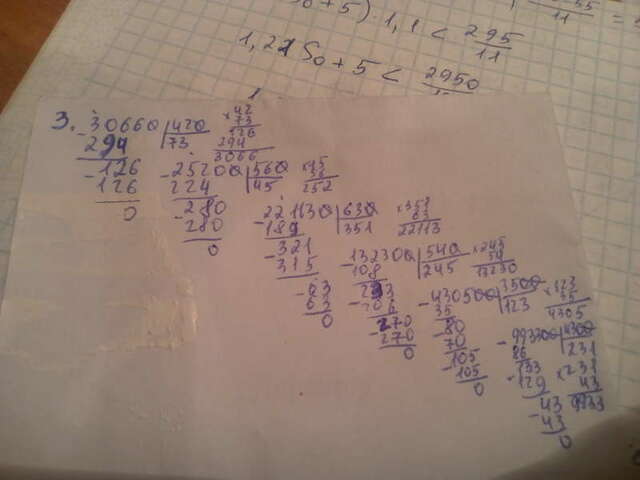 0+5) · 1,1 < 295/11
1,21 S₀ + 5 < 2950
3. 30660 | 420
294 | 73
-126
126
0
×42
73
126
294
3066
-25200 | 560
224 | 45
-280
280
0
×45
56
252
-221130 | 630
189 | 351
-321
315
-63
63
0
×351
63
22113
-132300 | 540
108 | 245
-243
216
-270
270
0
×245
54
13230
-430500 | 3500
35 | 123
-80
70
-105
105
0
×123
35
4305
-993300 | 4300
86 | 231
133
-129
-43
43
0
×231
43
9933